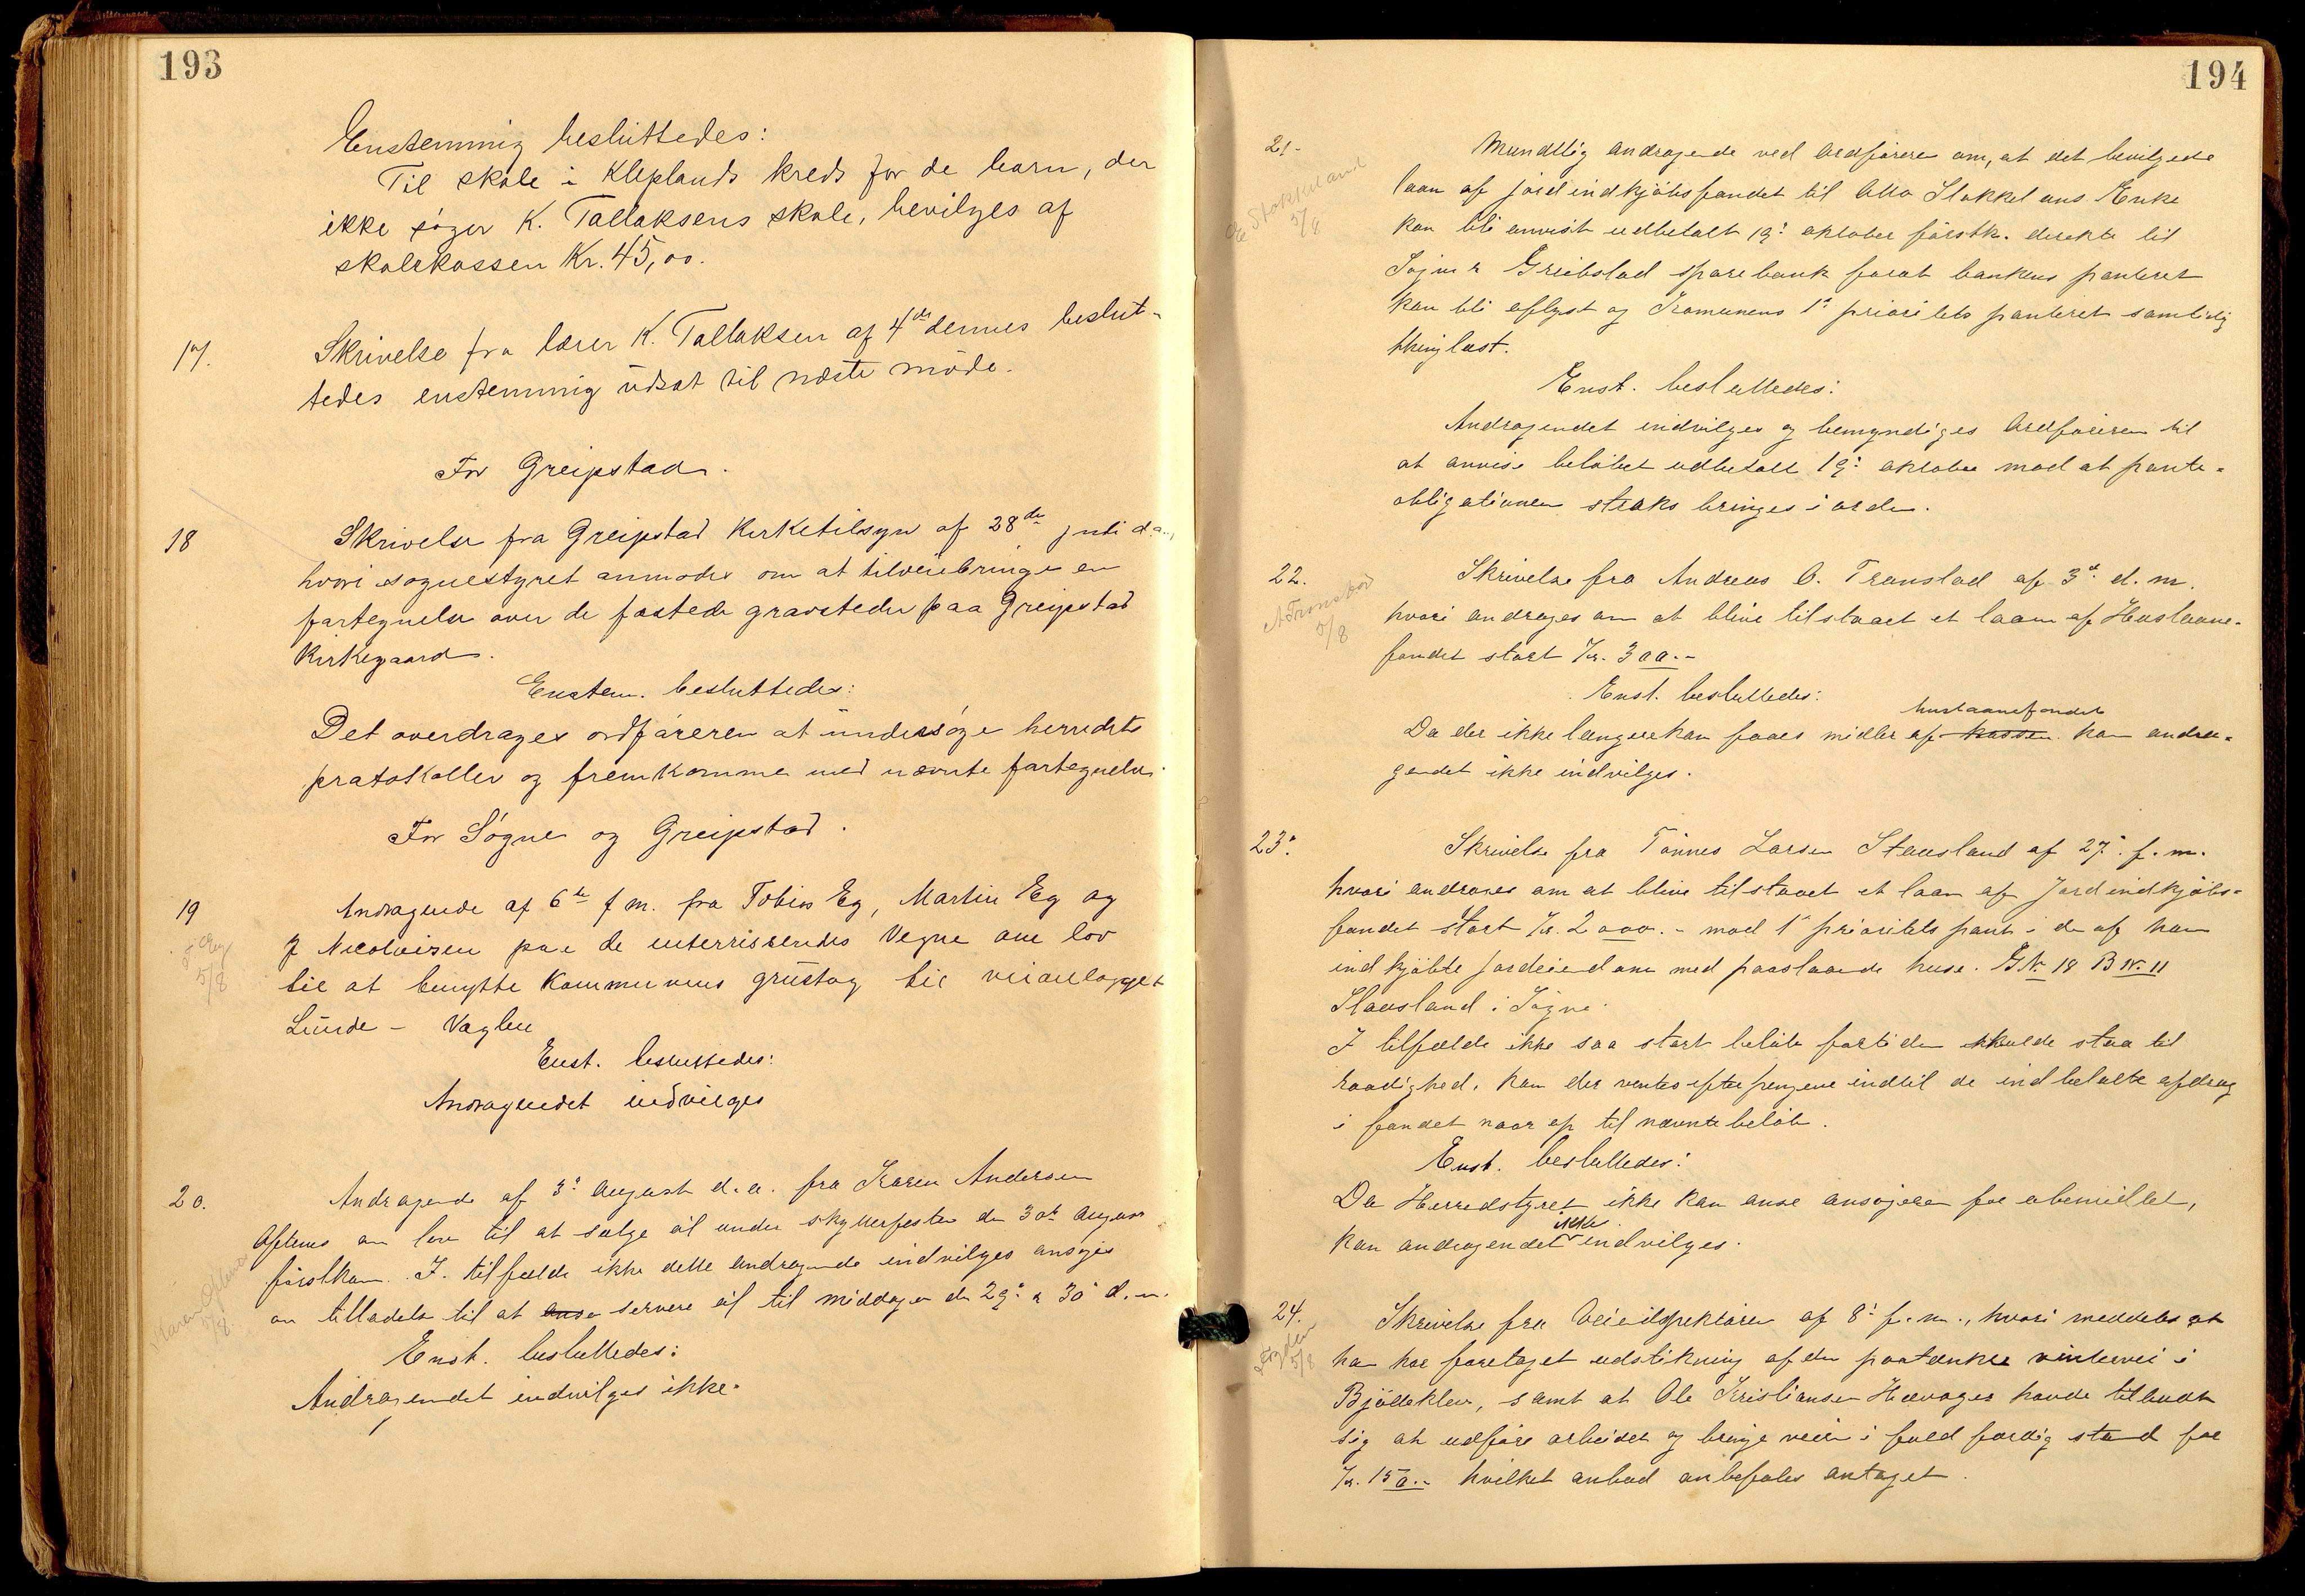 193
Enstemmig besluttedes:
Til skole i Kleplands kreds for de barn, der
ikke søger K. Tallaksens skole, bevilges af
skolekassen Kr. 45,00.
17.
Skrivelse fra lærer K. Tallaksen af 4de dennes beslut-
tedes enstemmig udsat til næste møde.
For Greipstad.
18
Skrivelse fra Greipstad Kirketilsyn af 28de juli d.a.,
hvori sognestyret anmodes om at tilveiebringe en
fortegnelse over de fæstede gravsteder paa Greipstad
Kirkegaard.
Enstem. besluttedes:
Det overdrages ordføreren at undersøge herredets
protokoller og fremkomme med nævnte fortegnelse.
For Søgne og Greipstad.
19
T Eg
5/8
Andragende af 6te f.m. fra Tobias Eg, Martin Eg og
J Nicolaisen paa de interresserendes Vegne om lov
til at benytte Kommunens grustag til veianlægget
Lunde - Vaglen
Enst. besluttedes:
Andragendet indvilges
20.
Karen
5/8
Andragende af 3' August d.a. fra Karen Andersen
Aftenes om lov til at sælge øl under skytterfesten den 30te August
førstkom. I tilfælde ikke dette andragende indvilges ansøges
om tilladelse til at servere øl til middagen den 29' & 30' d.m.
Enst. besluttedes:
Andragendet indvilges ikke.
194
21.
Stokkeland
5/8
Mundtlig andragende ved Ordføreren om, at det bevilgede
laan af jordindkjøbsfondet til Otto Stokkelans Enke
kan bli anvist udbetalt 19' oktober førstk. direkte til
Søgne & Greibstad sparebank forat bankens panteret
kan bli aflyst og Komunens 1' prioritets panteret samtidig
thinglæst.
Enst. besluttedes:
Andragendet indvilges og bemyndiges Ordføreren til
at anvise beløbet udbetalt 19' oktober mod at pante-
obligationen straks bringes i orden.
22.
A Tronstad
5/8
Skrivelse fra Andreas O. Tronstad af 3' d.m.
hvori andrages om at blive tilstaaet et laan af Huslaane-
fondet stort Kr. 300.-
Enst. besluttedes:
huslaanefondet
Da der ikke længere kan faaes midler af kassen kan andra-
gendet ikke indvilges.
23'.
Skrivelse fra Tønnes Larsen Stausland af 27' f.m.
hvori andrages om at blive tilstaaet et laan af Jordindkjøbs-
fondet stort Kr. 2000.- mod 1' prioritets pant i de af ham
indkjøbte Jordeiendom med paastaaende huse. G.Nr. 18 B Nr. 11
Stausland i Søgne.
I tilfælde ikke saa stort beløb fortiden skulde staa til
raadighed, kan der ventes efter pengene indtil de indbetalte afdrag
i fondet naar op til nævnte beløb.
Enst. besluttedes:
Da Herredstyret ikke kan anse ansøgeren for ubemidlet,
ikke
kan andragendet indvilges.
24.
5/8
Skrivelse fra Veiinspektøren af 8' f.m., hvori meddeles at
han har foretaget udstikning af den paatænkte vintervei i
Bjølleklev, samt at Ole Kristiansen Hævages havde tilbudt
sig at udføre arbeidet og bringe veien i fuld færdig stand for
Kr. 150.- hvilket anbud anbefales antaget.